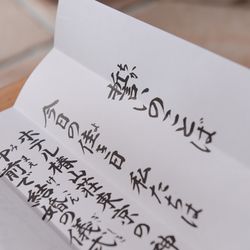 誓いのことば
今日の佳き日 私たちは
ホテル椿山荘東京の神
前で結婚の儀式